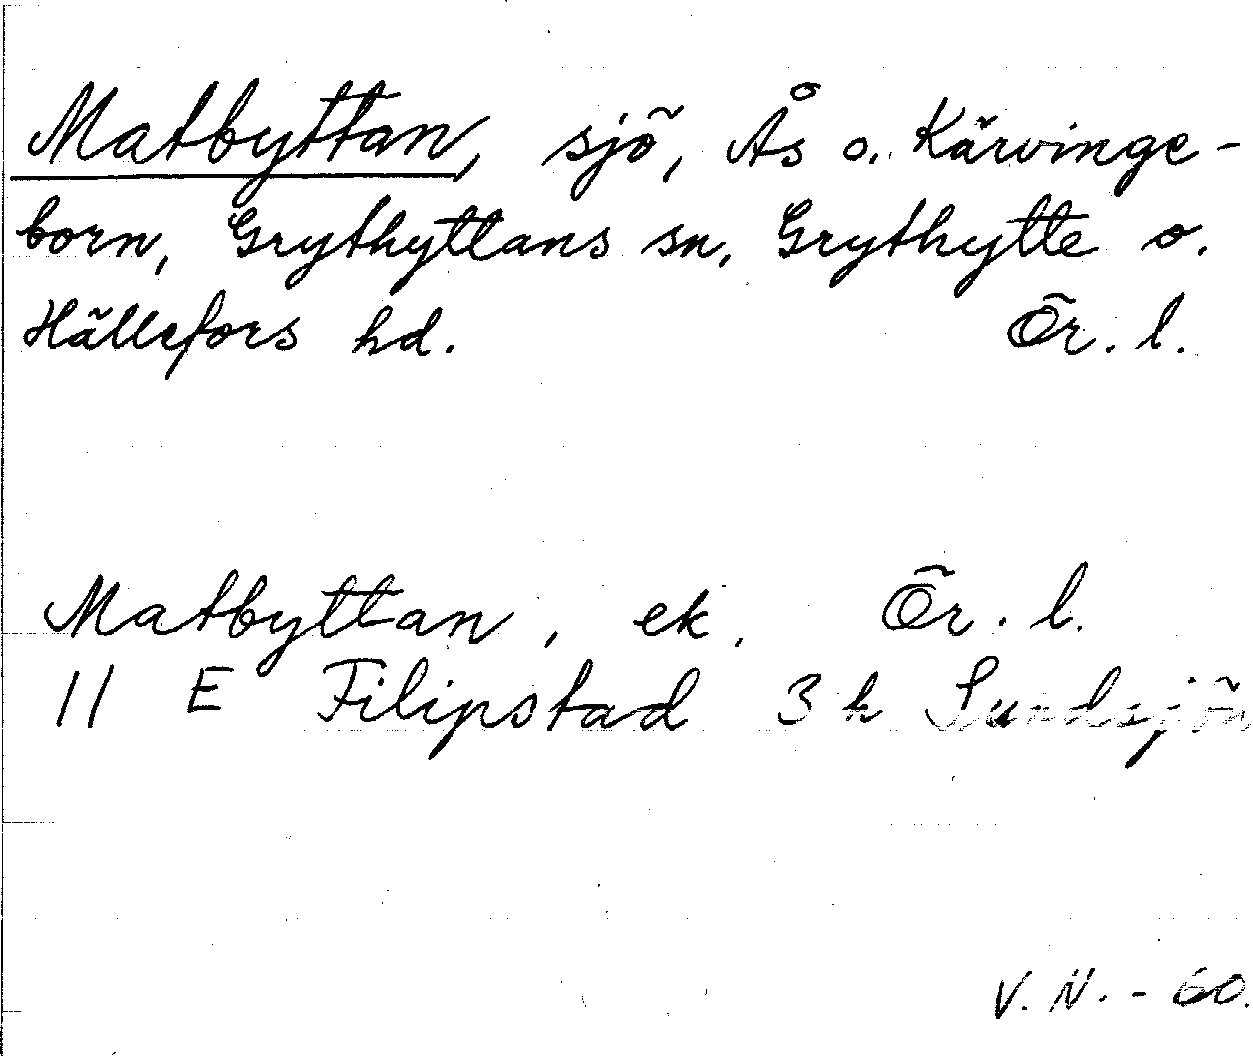 Matbyttan, sjö, Ås o. Kärvinge-
born, Grythyttans sn, Grythytte o.
Hällefors hd. Ör. l.
Matbyttan, ek. Ör. l.
11 E Filipstad 3 h Sundsjön
V. N. - 60.